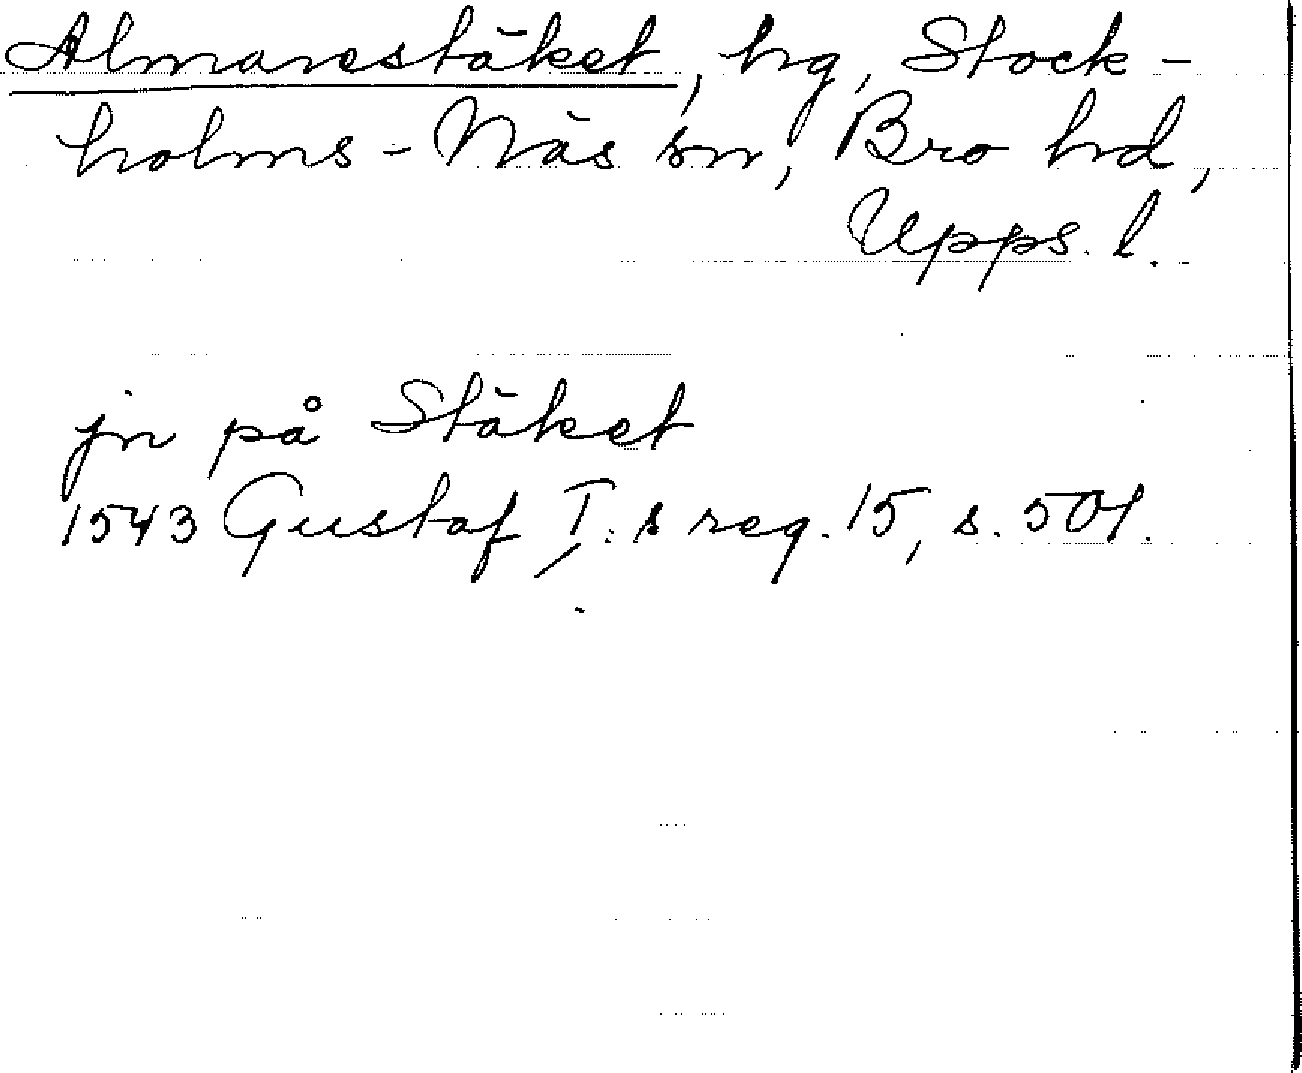 Almarestäket, hg, Stock-
holms-Näs sn, Bro hd,
Upps. l.
jn på Stäket
1543 Gustaf I:s reg. 15, s. 501.